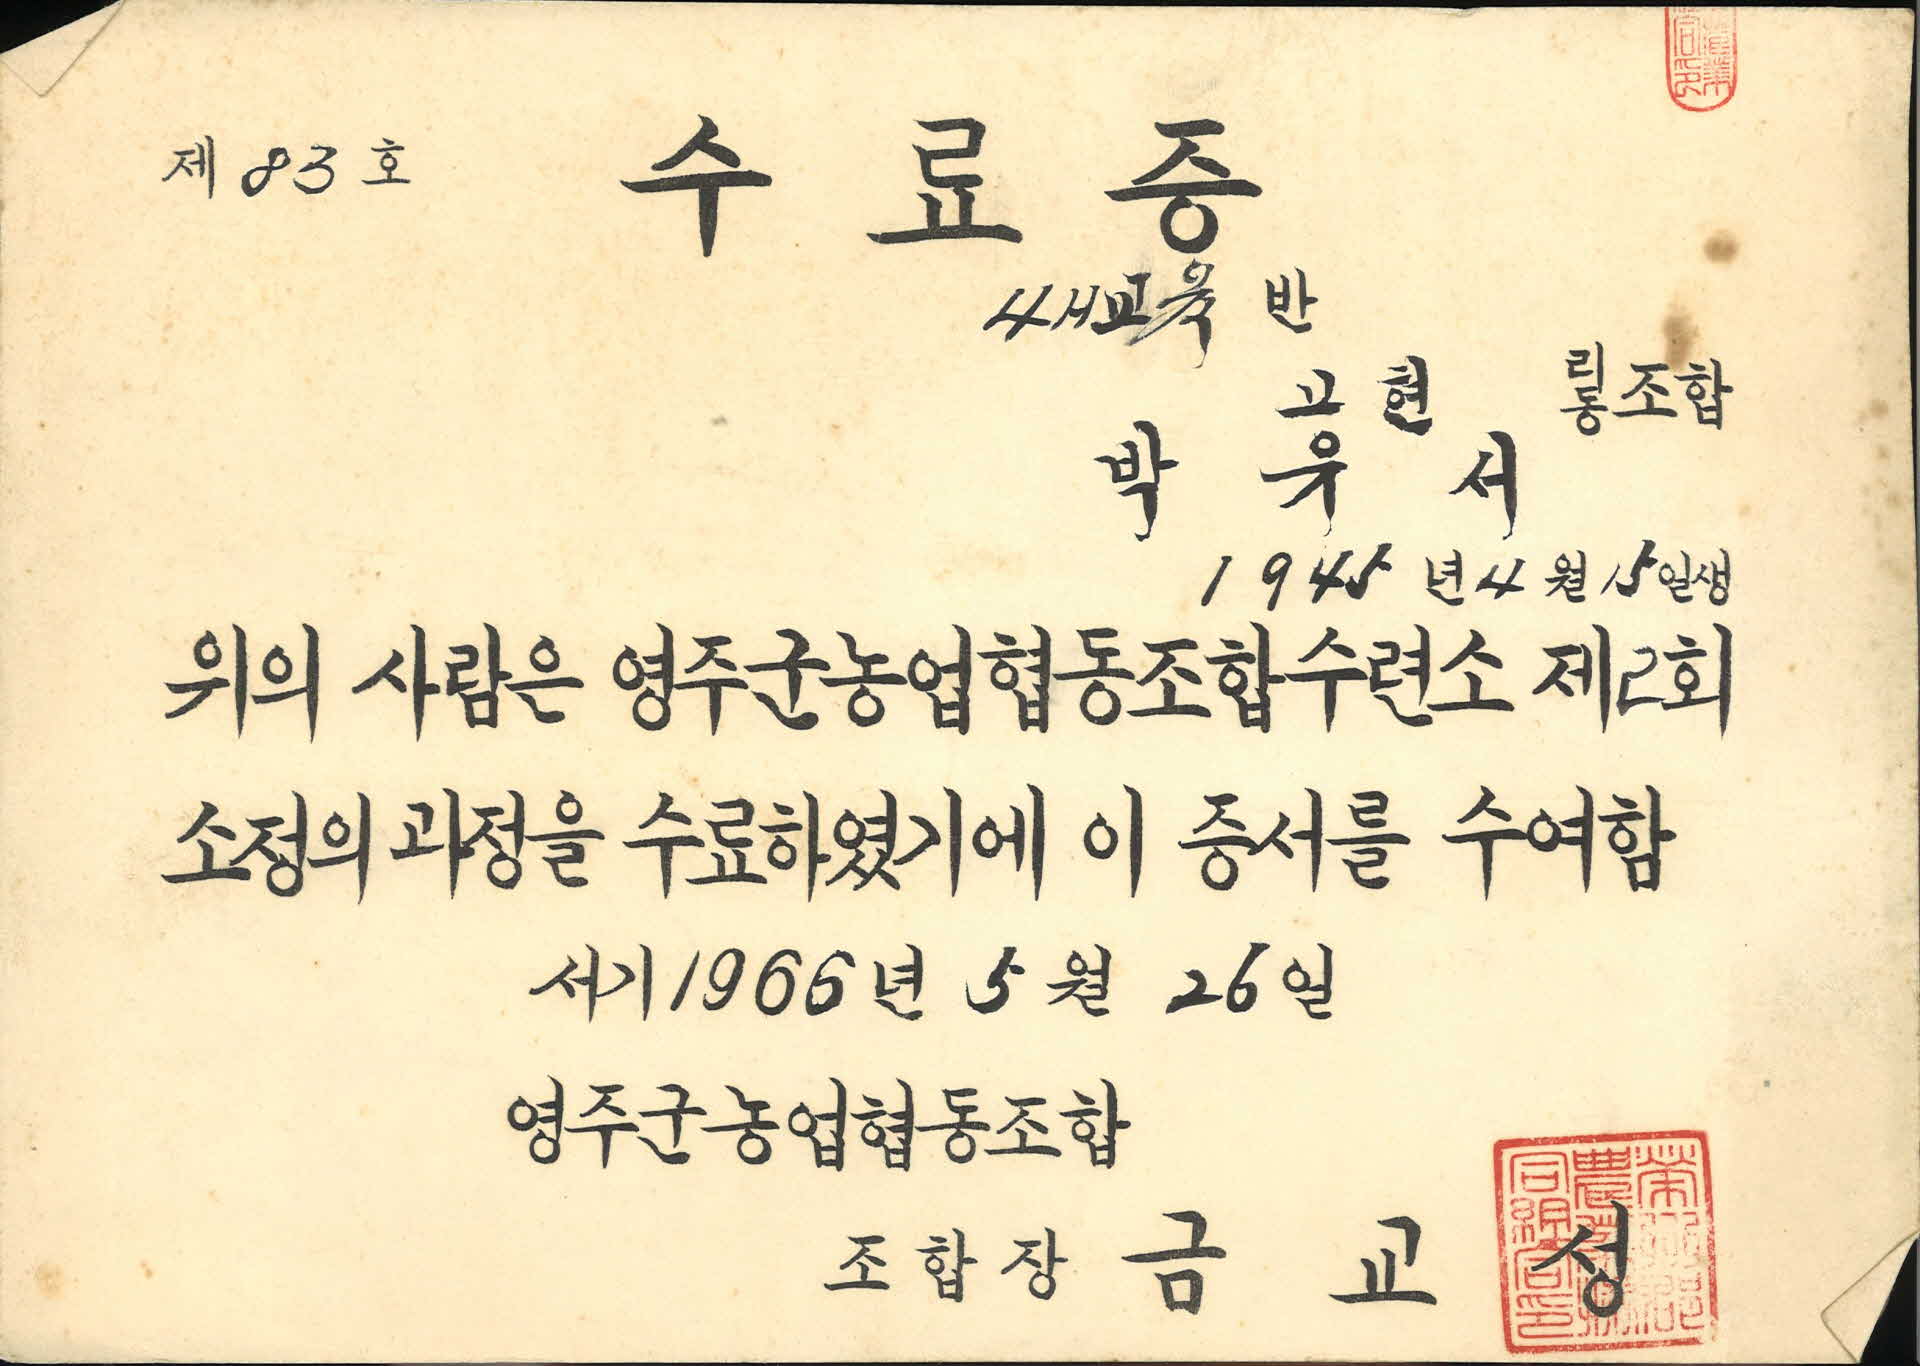 제 83 호
수료증
4H교육 반
고현 리동조합
박우서
1945년 4월 15일생
위의 사람은 영주군농업협동조합수련소 제2회
소정의 과정을 수료하였기에 이 증서를 수여함
서기 1966년 5월 26일
영주군농업협동조합
조합장 금교성